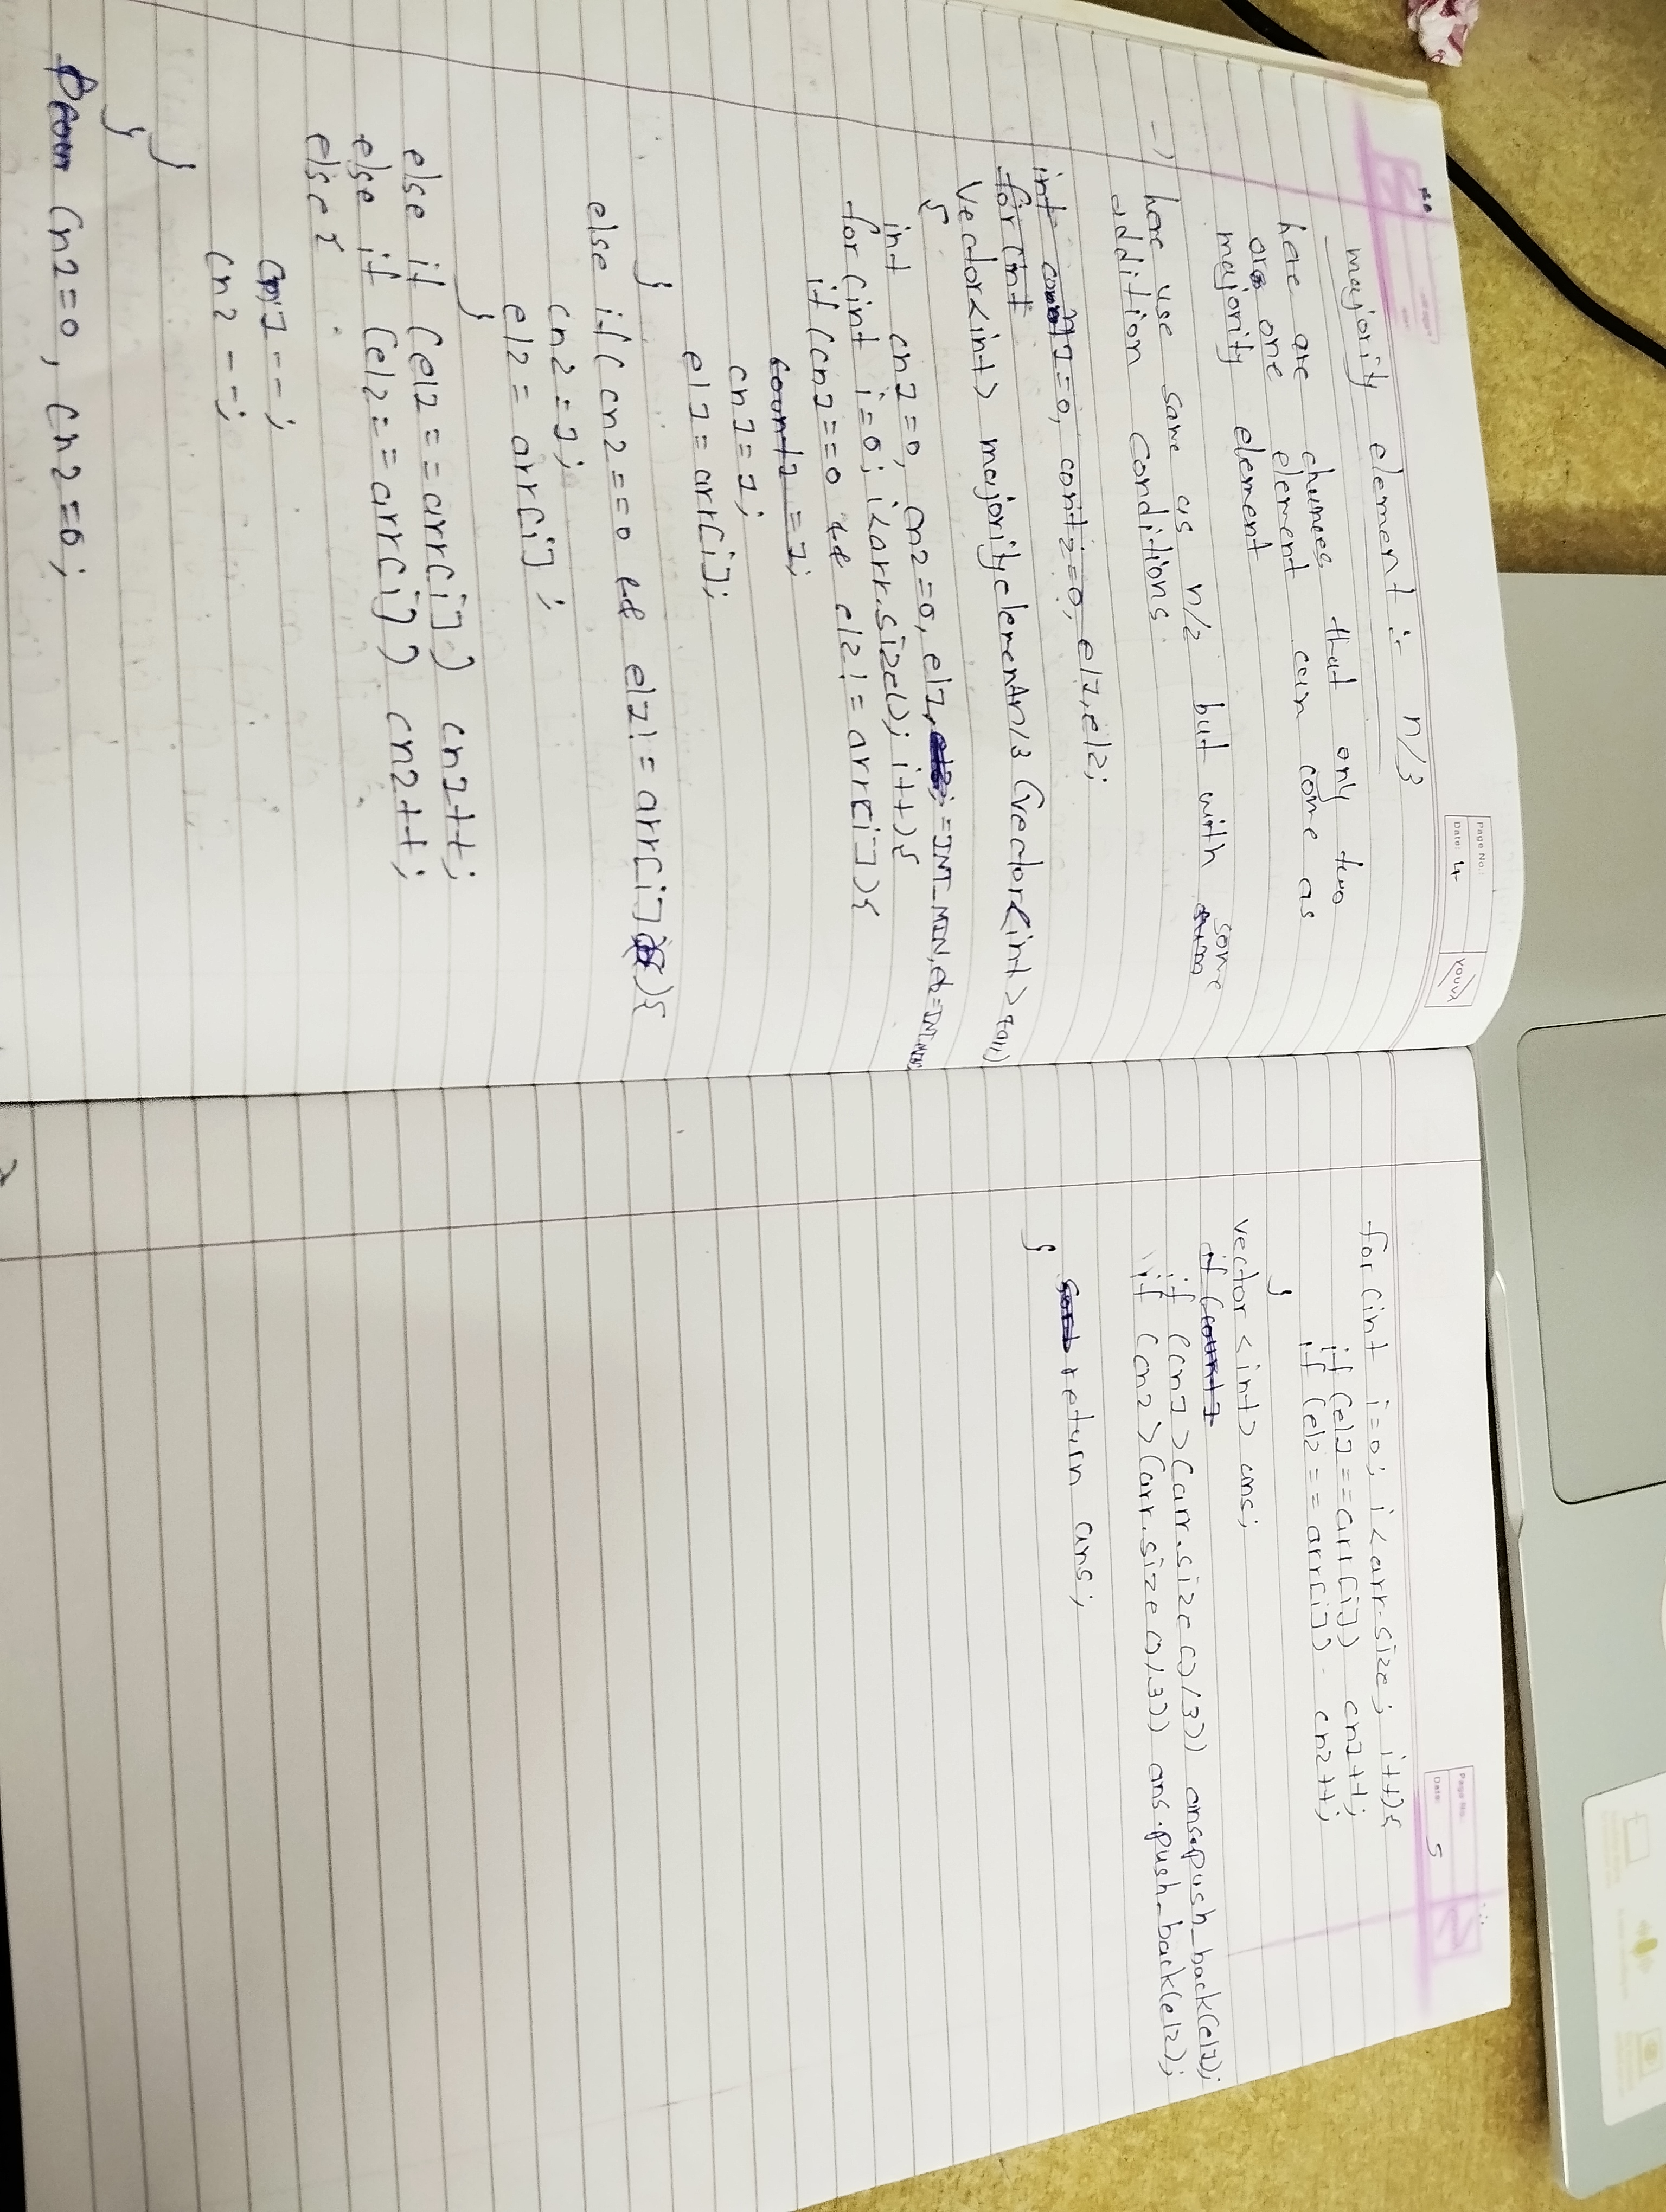 Page No.:
Date: 4
YOUVA
majority element :- n/3
here are chances that only two
or one element can come as
majority element
-) here use same as n/2 but with some
addition conditions.
int count1=0, cont2=0, el1,el2;
for(int
vector<int> majorityelementn/3 (vector<int>
{
int cn1=0, cn2=0, el1, =INT_MIN, el2=INT_MIN,
for(int i=0; i<arr.size(); i++){
if(cn1==0 && el2!=arr[i]){
count1=1;
cn1=1;
el1=arr[i];
}
else if(cn2==0 && el1!=arr[i]){
cn2=1;
el2=arr[i];
}
else if (el1==arr[i]) cn1++;
else if (el2==arr[i]) cn2++;
else {
cn1--;
cn2--;
}
}
cn1=0, cn2=0;
Page No.
Date: 5
for(int i=0; i<arr.size; i++){
if(el1==arr[i]) cn1++;
if(el2==arr[i]) cn2++;
}
vector<int> ans;
if(count1
if (cn1>(arr.size()/3)) ans.push_back(el1);
if (cn2>(arr.size()/3)) ans.push_back(el2);
return ans;
}